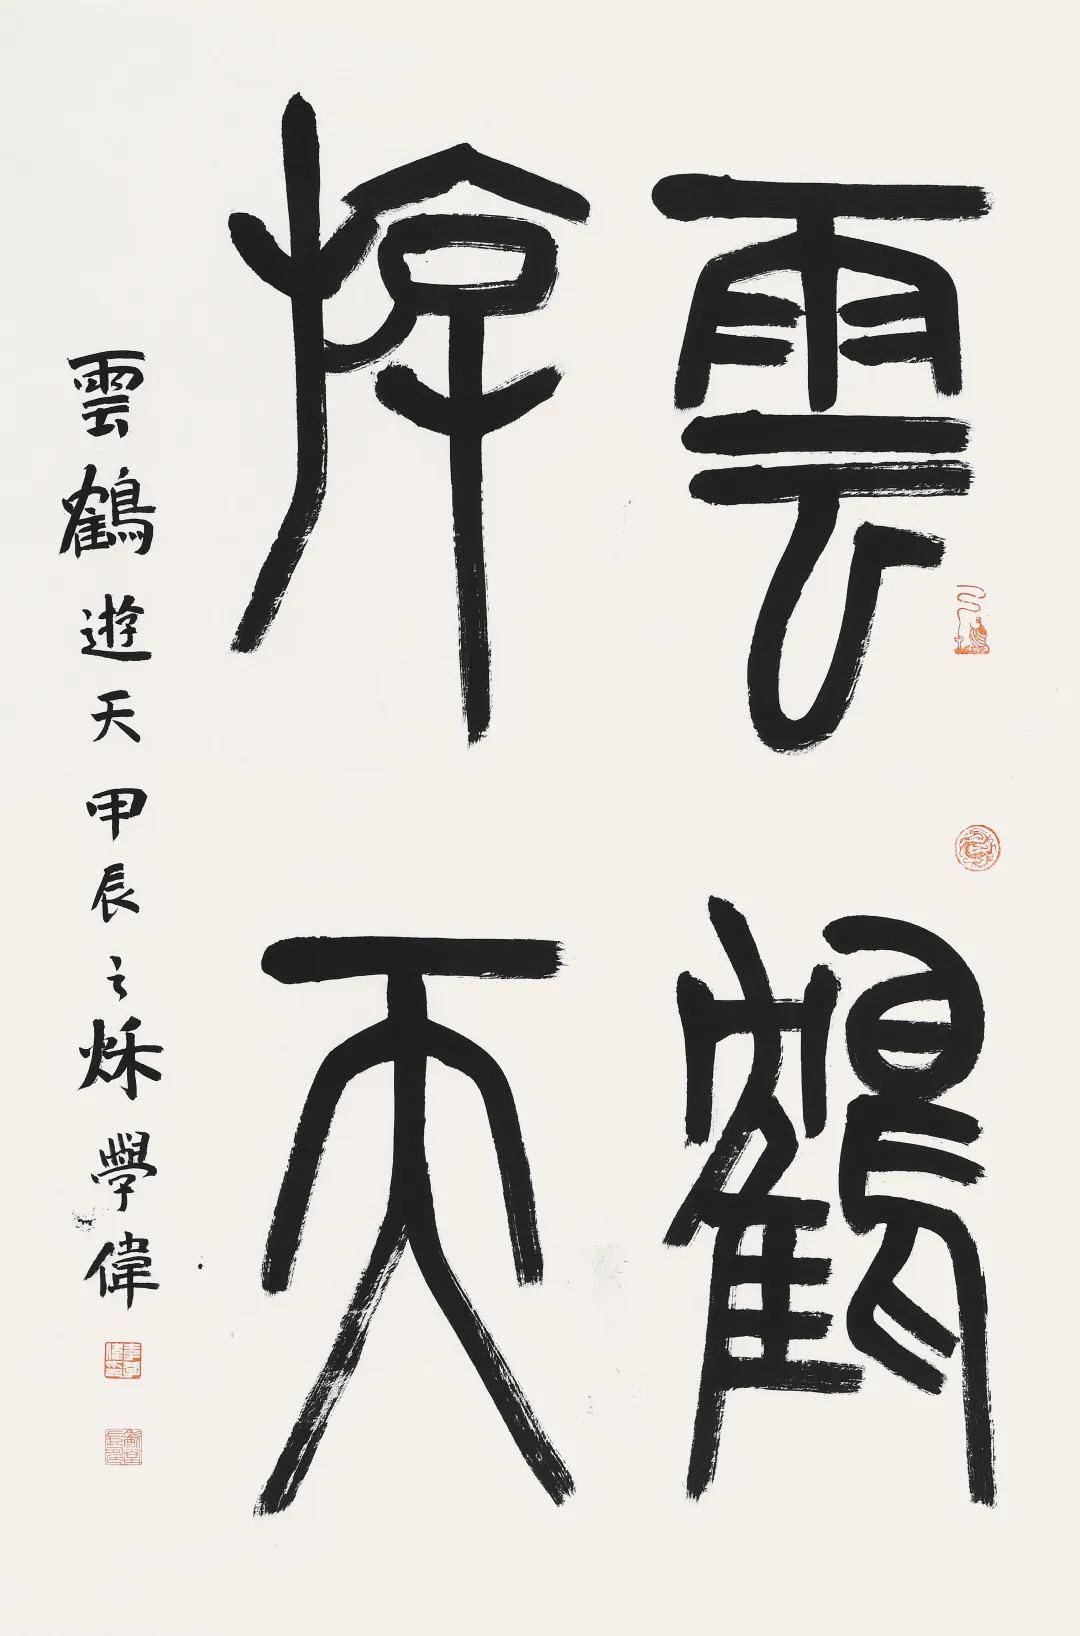 雲鶴
遊天
雲鶴遊天甲辰之秌學偉